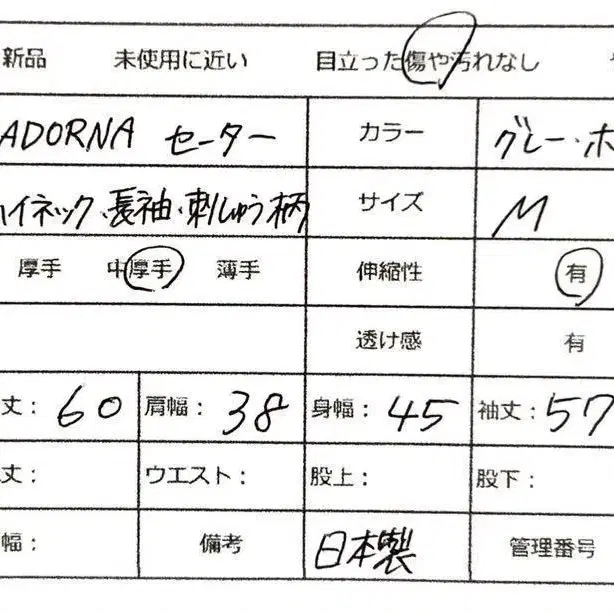 新品 未使用に近い 目立った傷や汚れなし
ADORNA セーター カラー グレー・ホ
ハイネック、長袖・刺しゅう柄 サイズ M
厚手 中厚手 薄手 伸縮性 有
透け感 有
丈: 60 肩幅: 38 身幅: 45 袖丈: 57
丈: ウエスト: 股上: 股下:
幅: 備考 日本製 管理番号